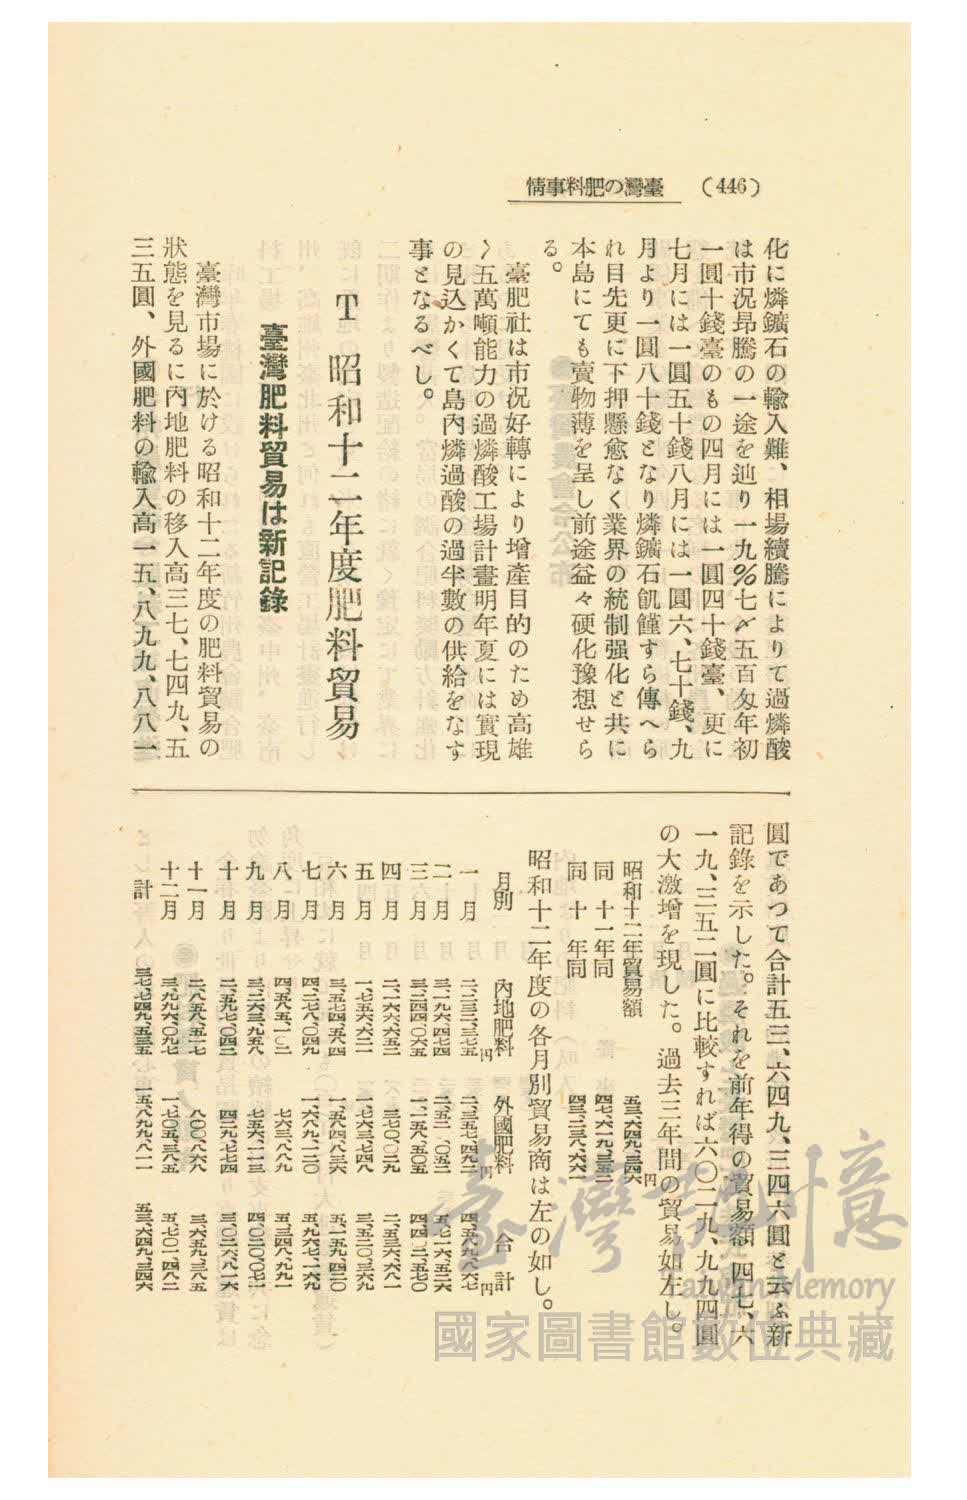 (446) 臺灣の肥料事情
化に燐鑛石の輸入難、相場續騰によりて過燐酸
は市況昂騰の一途を辿り一九％七〆五百匁年初
一圓十錢臺のもの四月には一圓四十錢臺、更に
七月には一圓五十錢八月には一圓六、七十錢、九
月より一圓八十錢となり燐鑛石飢饉すら傳へら
れ目先更に下押懸愈なく業界の統制强化と共に
本島にても賣物薄を呈し前途益々硬化豫想せら
る。
臺肥社は市況好轉により增產目的のため高雄
〜五萬噸能力の過燐酸工場計畫明年夏には實現
の見込かくて島內燐過酸の過半數の供給をなす
事となるべし。
T 昭和十二年度肥料貿易
臺灣肥料貿易は新記錄
臺灣市場に於ける昭和十二年度の肥料貿易の
狀態を見るに內地肥料の移入高三七、七四九、五
三五圓、外國肥料の輸入高一五、八九九、八八一
圓であつて合計五三、六四九、三四六圓と云ふ新
記錄を示した。それを前年得の貿易額 四七、六
一九、三五二圓に比較すれば六〇二九、九九四圓
の大激增を現した。過去三年間の貿易如左し。
昭和十二年貿易額 五三、六四九、三四六円
同 十一年同 四七、六一九、三五二
同 十 年同 四三、二三八、六六一
昭和十二年度の各月別貿易商は左の如し。
月別 內地肥料 外國肥料 合 計
一 月 二、二三二、三七五円 二、三五七、四九二円 四、五八九、八六七円
二 月 三、一九六、四七四 二、五二〇、〇五二 五、七一六、五二六
三 月 三、二四四、〇六五 一、一五八、五〇五 四、四〇二、五七〇
四 月 二、一六六、六五二 三七〇、〇二九 二、五三六、六八一
五 月 一、七五六、六二一 一、七六三、七四八 三、五二〇、三六九
六 月 三、五七四、五八四 一、五八四、八三六 五、一五九、四二〇
七 月 四、二七八、〇四九 一、六八九、一二〇 五、九六七、一六九
八 月 四、五八五、一〇二 七六三、八八九 五、三四八、九九一
九 月 三、二六三、九五八 七五六、一一三 四、〇二〇、〇七一
十 月 二、五九七、〇四二 四二九、七七四 三、〇二六、八一六
十一月 二、八五八、五一七 八〇〇、八六八 三、六五九、三八五
十二月 三、九九六、〇九七 一、七〇五、三八五 五、七〇一、四八二
計 三七、七四九、五三五 一五、八九九、八一一 五三、六四九、三四六
臺灣記憶
Taiwan Memory
國家圖書館數位典藏